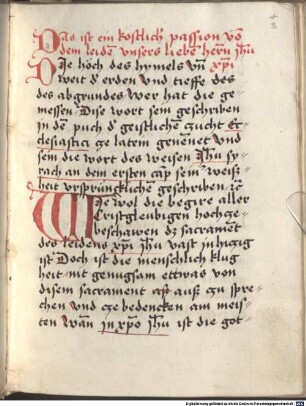 Das ist ein kostlich passion vō
dem leiden unsers liebē herrn Jhū
xp̄i
Die höch des hymels vn̄
weit d erden und tieffe des
des abgrundes wer hat die ge
messen Dise wort sein geschriben
in dem puch d geistlichen zucht Ec
clesiastici ze latem genennet und
sein die wort des weisen Jhū sy
rach an dem ersten cap̄ seim weiß
heit ursprüncklichē geschriben ꝛc̄
Wie wol die begire aller
cristgleubigen hoch ze
beschawen dz sacrament
des leidens xp̄i Jhū vast inhiczig
ist Doch ist die menschlich klug
heit nit genugsam ettwas von
disem sacrament auß zu spre
chen und ze bedencken am meis
ten wān in xp̄o Jhū ist die got